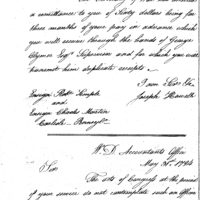 a remittance to you of Sixty dollars being for
three months of your pay in advance which
you will receive through the hands of George
Clymer Esqr Supervisor and for which you will
transmit him duplicate receipts
I am Sir &c
Joseph Howell
Ensign Robt Semple
and
Ensign Charles
Carlisle. Pennsyla
W D. Accountants Office
May 20th 1794
Sir
The acts of Congress at the
period of your service do not contemplate such an Officer